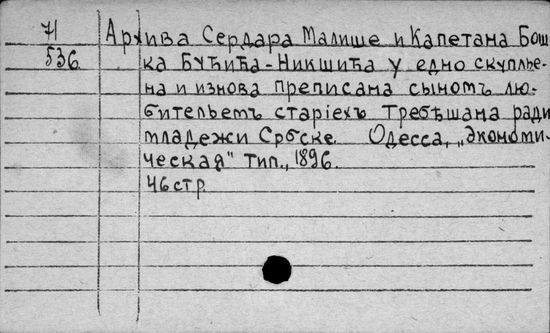 71 Архива Сердара Малише и Капетана Бош
536 ка Бућића-Никшића у едно скуплѣ-
на и изнова преписана сыномъ лю-
бительемъ старіехъ Требѣшана ради
младежи Србске. Одесса, „Экономи-
ческая" тип., 1896.
46 стр.